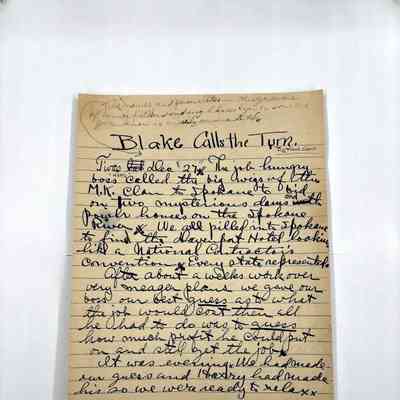 Blake Calls the Turn.
Twas Dec '27. The job hungry
boss called the big wigs of the
M.K. Clan to Spokane to bid
on two mysterious dams with
power houses on the Spokane
River. We all pilled into Spokane
to find the Davenport Hotel looking
like a National Contractor's
convention. Every state represented.
After about a weeks work over
very meager plans we gave our
boss our best guess as to what
the job would cost then all
he had to do was to guess
how much profit he could put
on and still get the job.
It was evening. We had made
our guess and Harry had made
his so we were ready to relax